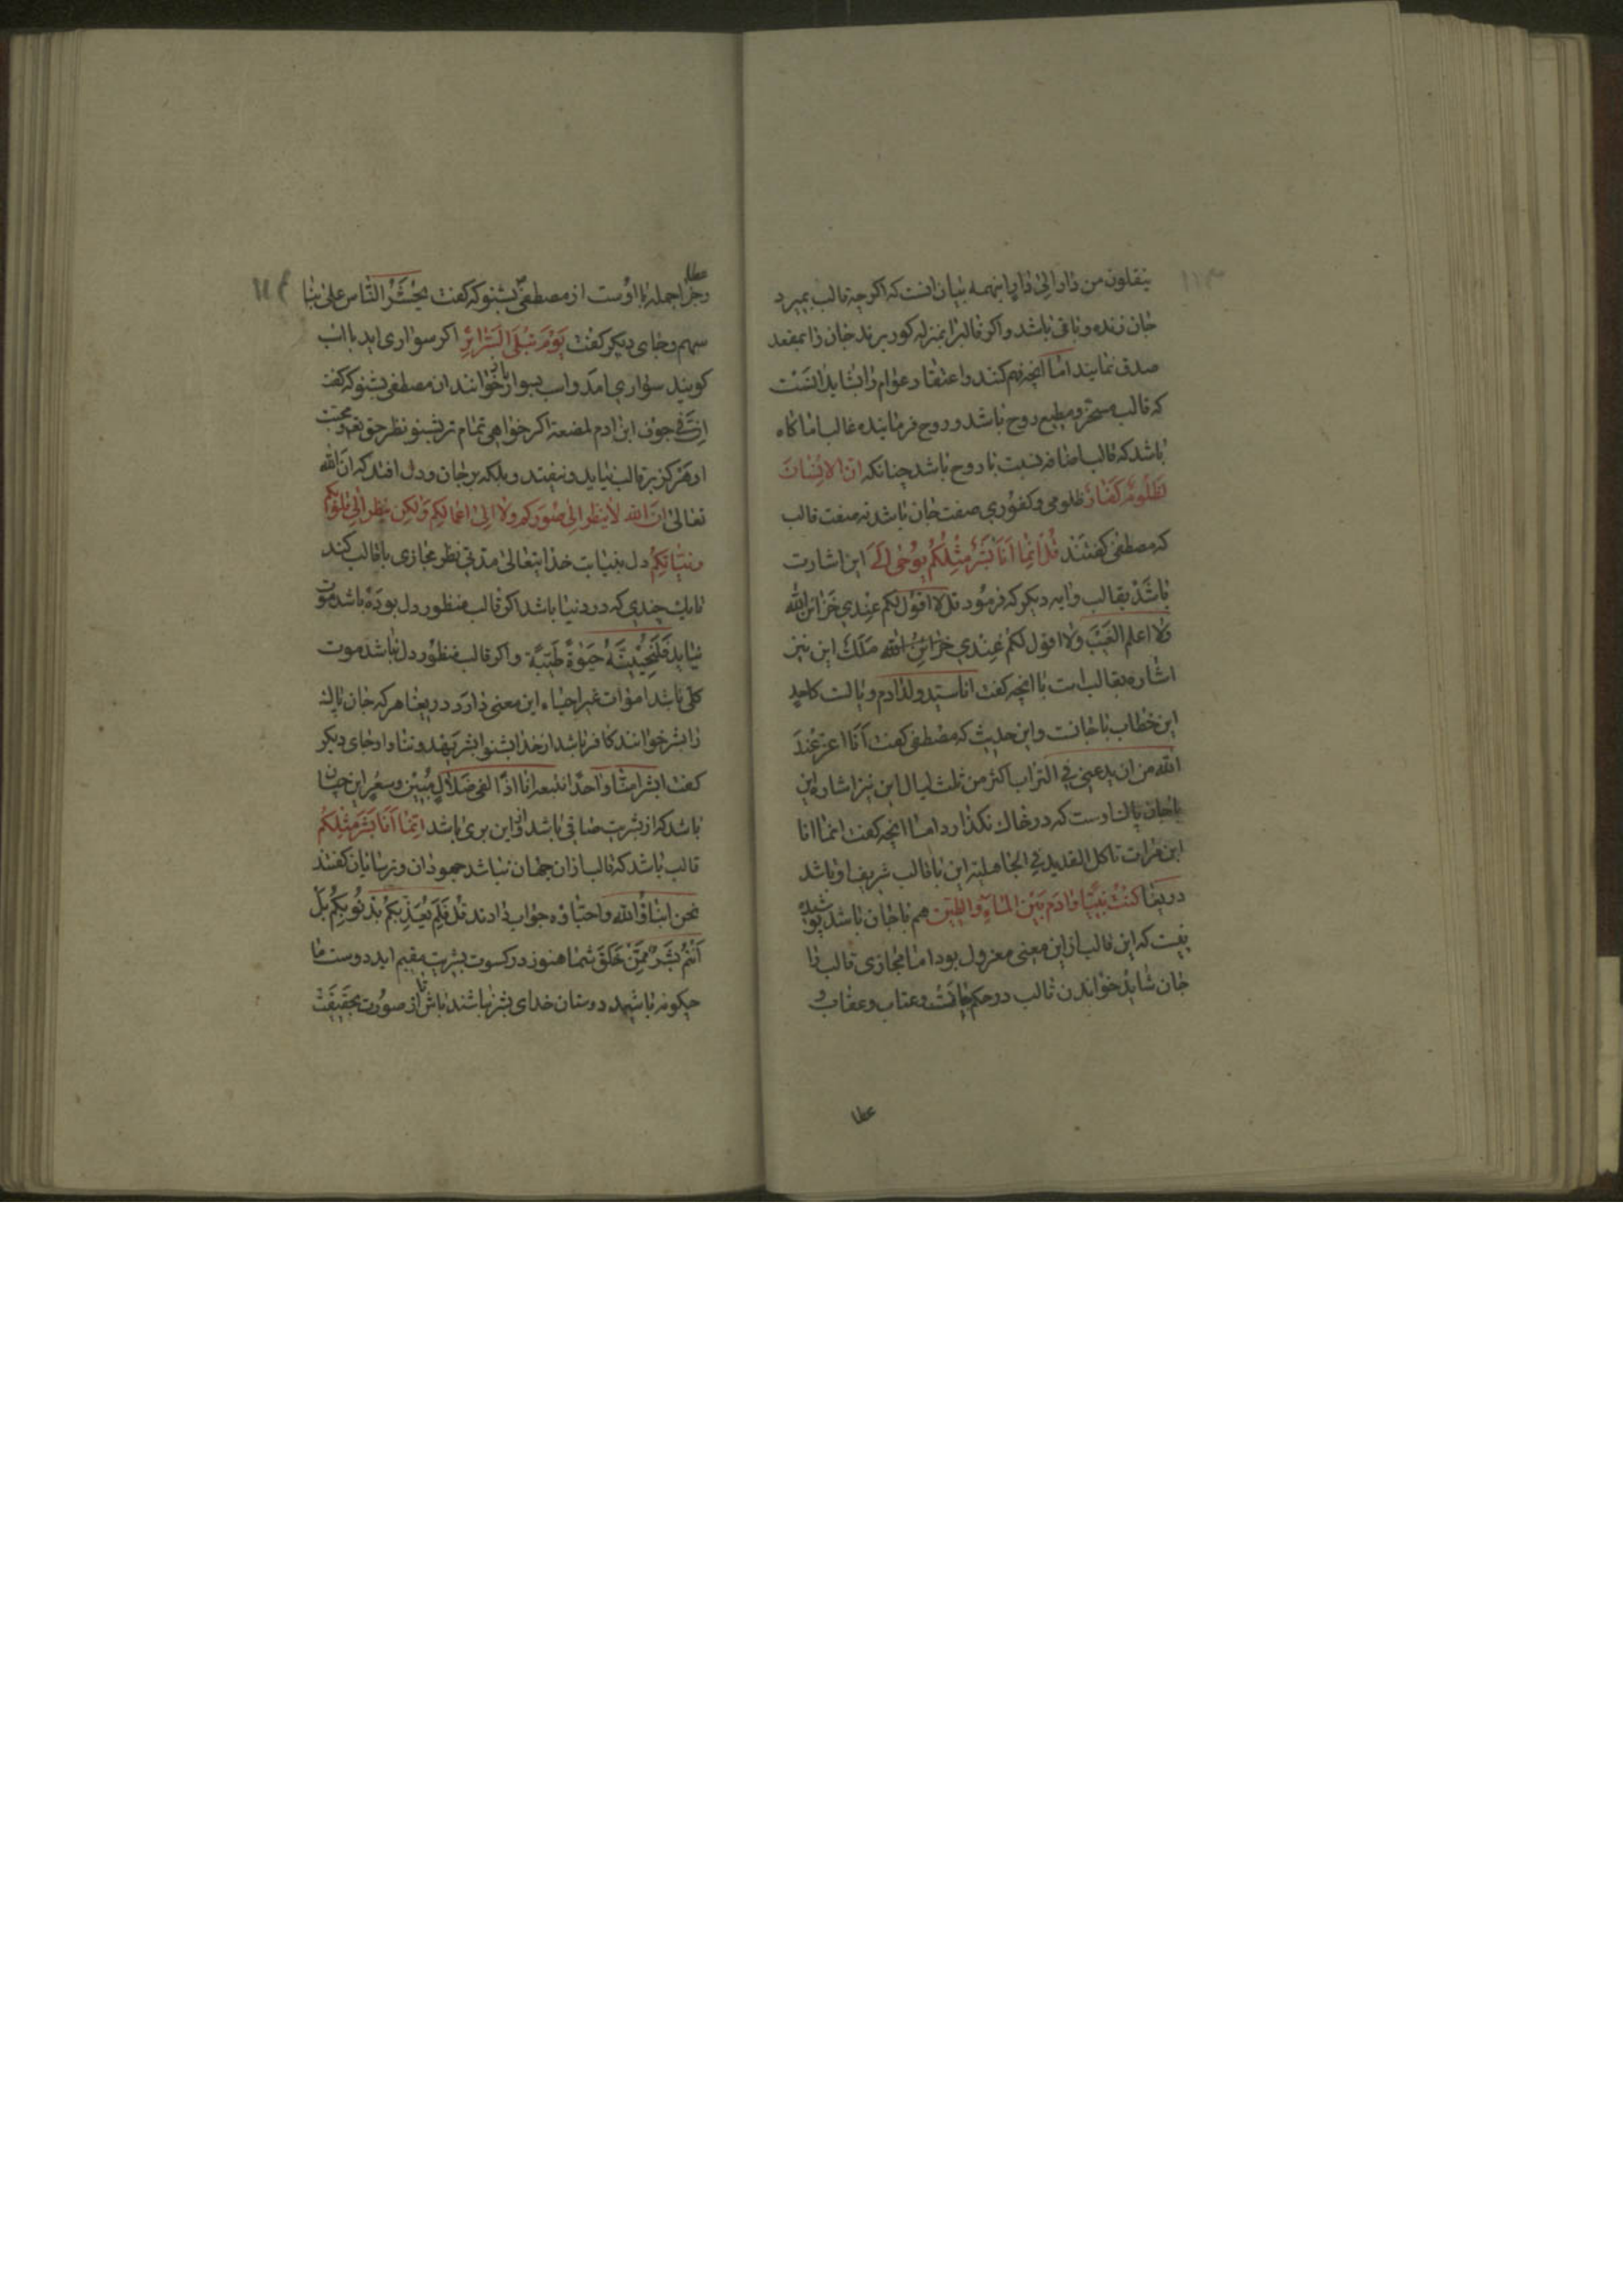 ۱۱۳
ینقلون من دار الی دار اینهمه بیان انست که اکرچه قالب بمیرد
جان زنده و باقی باشد و اکر قالبرا بمنزله کور برند جان را بمقعد
صدق نمایند اما آنچه فهم کنند و اعتقاد عوام را بشاید آنست
که قالب مسخر و مطیع روح باشد و روح فرماینده غالب اما کاه
باشد که قالب اضافه نسبت با روح باشد چنانکه ان الانسان
لظلوم کفار ظلومی و کفوری صفت جان باشد نه صفت قالب
که مصطفی کفتند قل انما انا بشر مثلکم یوحی الی این اشارت
باشد بقالب و ایه دیکر که فرمود قل لا اقول لکم عندی خزائن الله
ولا اعلم الغیب ولا اقول لکم عندی خزائن الله ملک این نیز
اشاره بقالب است با انچه کفت انا سید ولد ادم و
این خطاب با جانست و این حدیث که مصطفی کفت انا اعز عند
الله من ان یدعنی فی التراب اکثر من ثلث لیال این نیز اشاره این
با جان پاک اوست که در خاک نکذارد اما انچه کفت انما انا
ابن مرات تاکل القدید فی الجاهلیة این با قالب شریف او باشد
دریغا کنت نبیا و ادم بین الماء و الطین هم با جان باشد پوشیده
نیست که این قالب از این معنی معزول بود اما مجازی قالب را
جان شاید خواندن قالب در حکم جانست و عتاب و عقاب و
عطا
۱۱۴
عطا
وجزا جمله با اوست از مصطفی بشنو که کفت یحشر الناس علی نیا
سهم و جای دیکر کفت یوم تبلی السرائر اکر سواری اید با اسب
کویند سواری امد و اسب سوار باز خوانند از مصطفی بشنو که کفت
ان فی جوف ابن ادم لمضغة اکر خواهی تمام تر بشنو نظر حق تعم و محبت
او هرکز بر قالب نیاید و نیفتد و بلکه بر جان و دل افتد که ان الله
تعالی ان الله لا ینظر الی صورکم ولا الی اعمالکم ولکن ینظر الی قلوبکم
و نیاتکم دل بنیابت خدایتعالی مدتی نظر مجازی با قالب کند
تا یک چندی که در دنیا باشد اکر قالب منظور دل بوده باشد موت
نیاید فلنحیینه حیوة طیبة و اکر قالب منظور دل نباشد موت
کلی باشد اموات غیر احیاء این معنی دارد دریغا هرکه جان پاک
را بشر خواند کافر باشد از خدا بشنو ابشر یهدوننا و ا جای دیکر
کفت ابشرا منا واحدا نتبعه انا اذا لفی ضلال مبین وسعر این جان
باشد که از بشریت صافی باشد و از این بری باشد انما انا بشر مثلکم
قالب باشد که قالب از ان جهان نباشد جهودان و ترسایان کفتند
نحن ابناؤ الله واحباؤه جواب دادند قل فلم یعذبکم بذنوبکم بل
انتم بشر ممن خلق شما هنوز در کسوت بشریت مقیم اید دوست ما
چکونه باشید دوستان خدای بشر نباشند باش تا از صورت بحقیقت